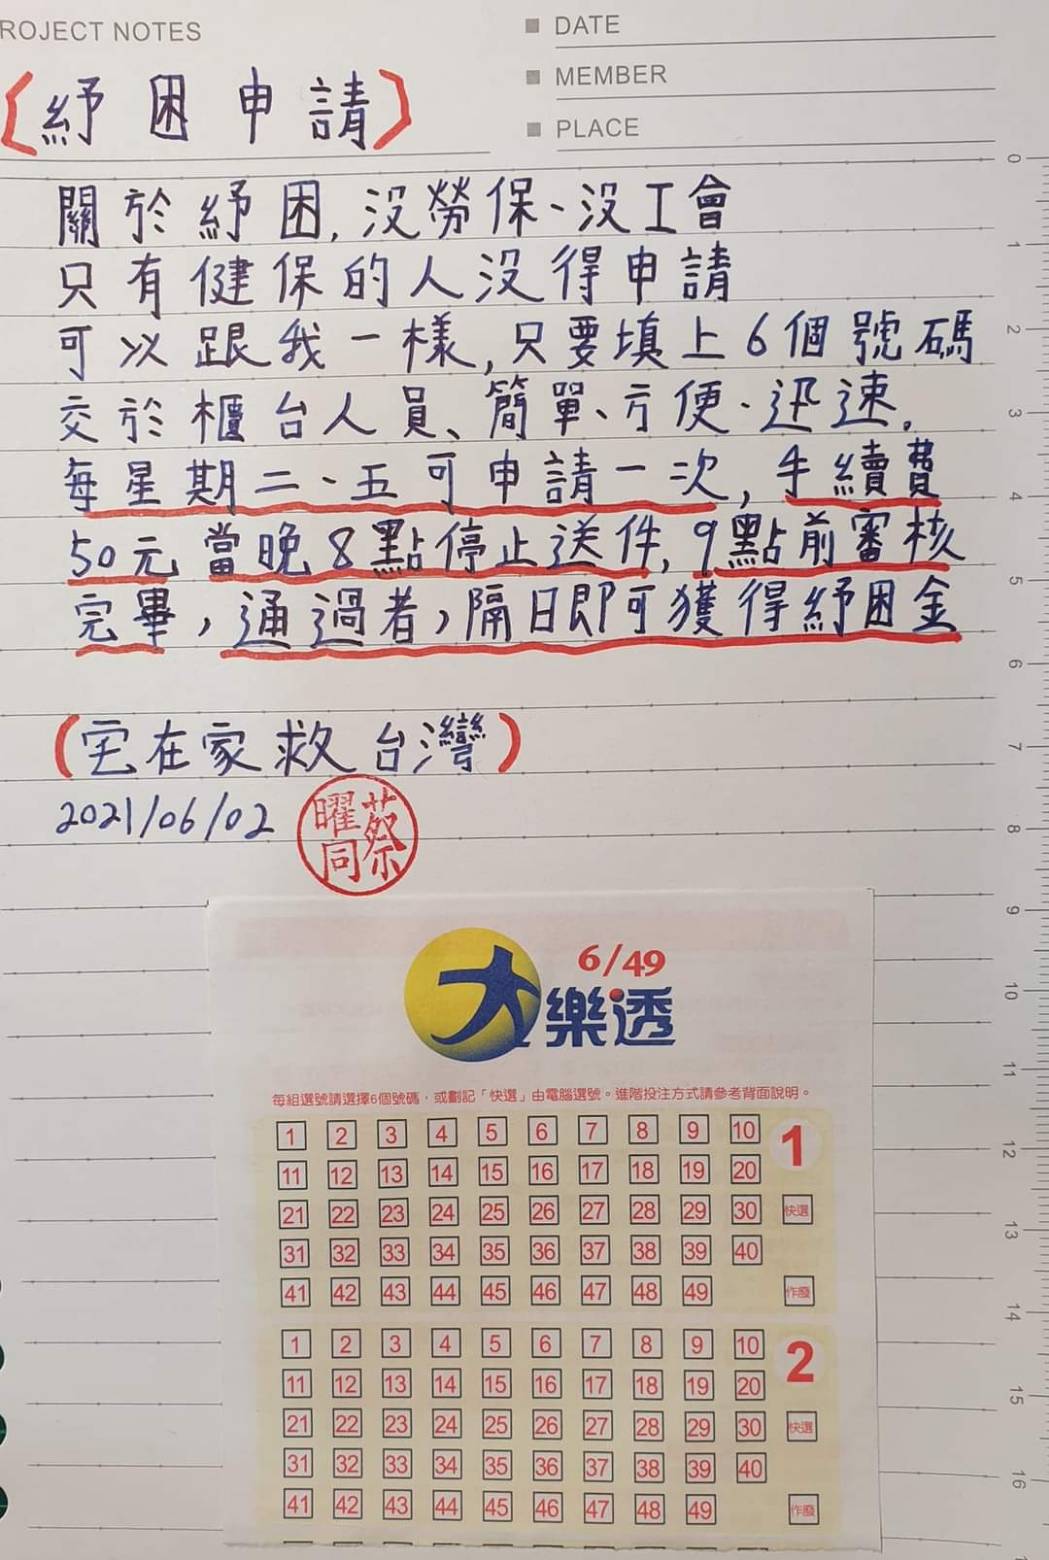 ROJECT NOTES
DATE
MEMBER
PLACE
(紓困申請)
關於紓困,沒勞保、沒工會
只有健保的人沒得申請
可以跟我一樣,只要填上6個號碼
交於櫃台人員、簡單、方便、迅速,
每星期二、五可申請一次,手續費
50元當晚8點停止送件,9點前審核
完畢,通過者,隔日即可獲得紓困金
(宅在家救台灣)
2021/06/02
蔡曜同
6/49
大樂透
每組選號請選擇6個號碼,或劃記「快選」由電腦選號。進階投注方式請參考背面說明。
1 2 3 4 5 6 7 8 9 10 1
11 12 13 14 15 16 17 18 19 20
21 22 23 24 25 26 27 28 29 30 快選
31 32 33 34 35 36 37 38 39 40
41 42 43 44 45 46 47 48 49 作廢
1 2 3 4 5 6 7 8 9 10 2
11 12 13 14 15 16 17 18 19 20
21 22 23 24 25 26 27 28 29 30 快選
31 32 33 34 35 36 37 38 39 40
41 42 43 44 45 46 47 48 49 作廢
0
1
2
3
4
5
6
7
8
9
10
11
12
13
14
15
16